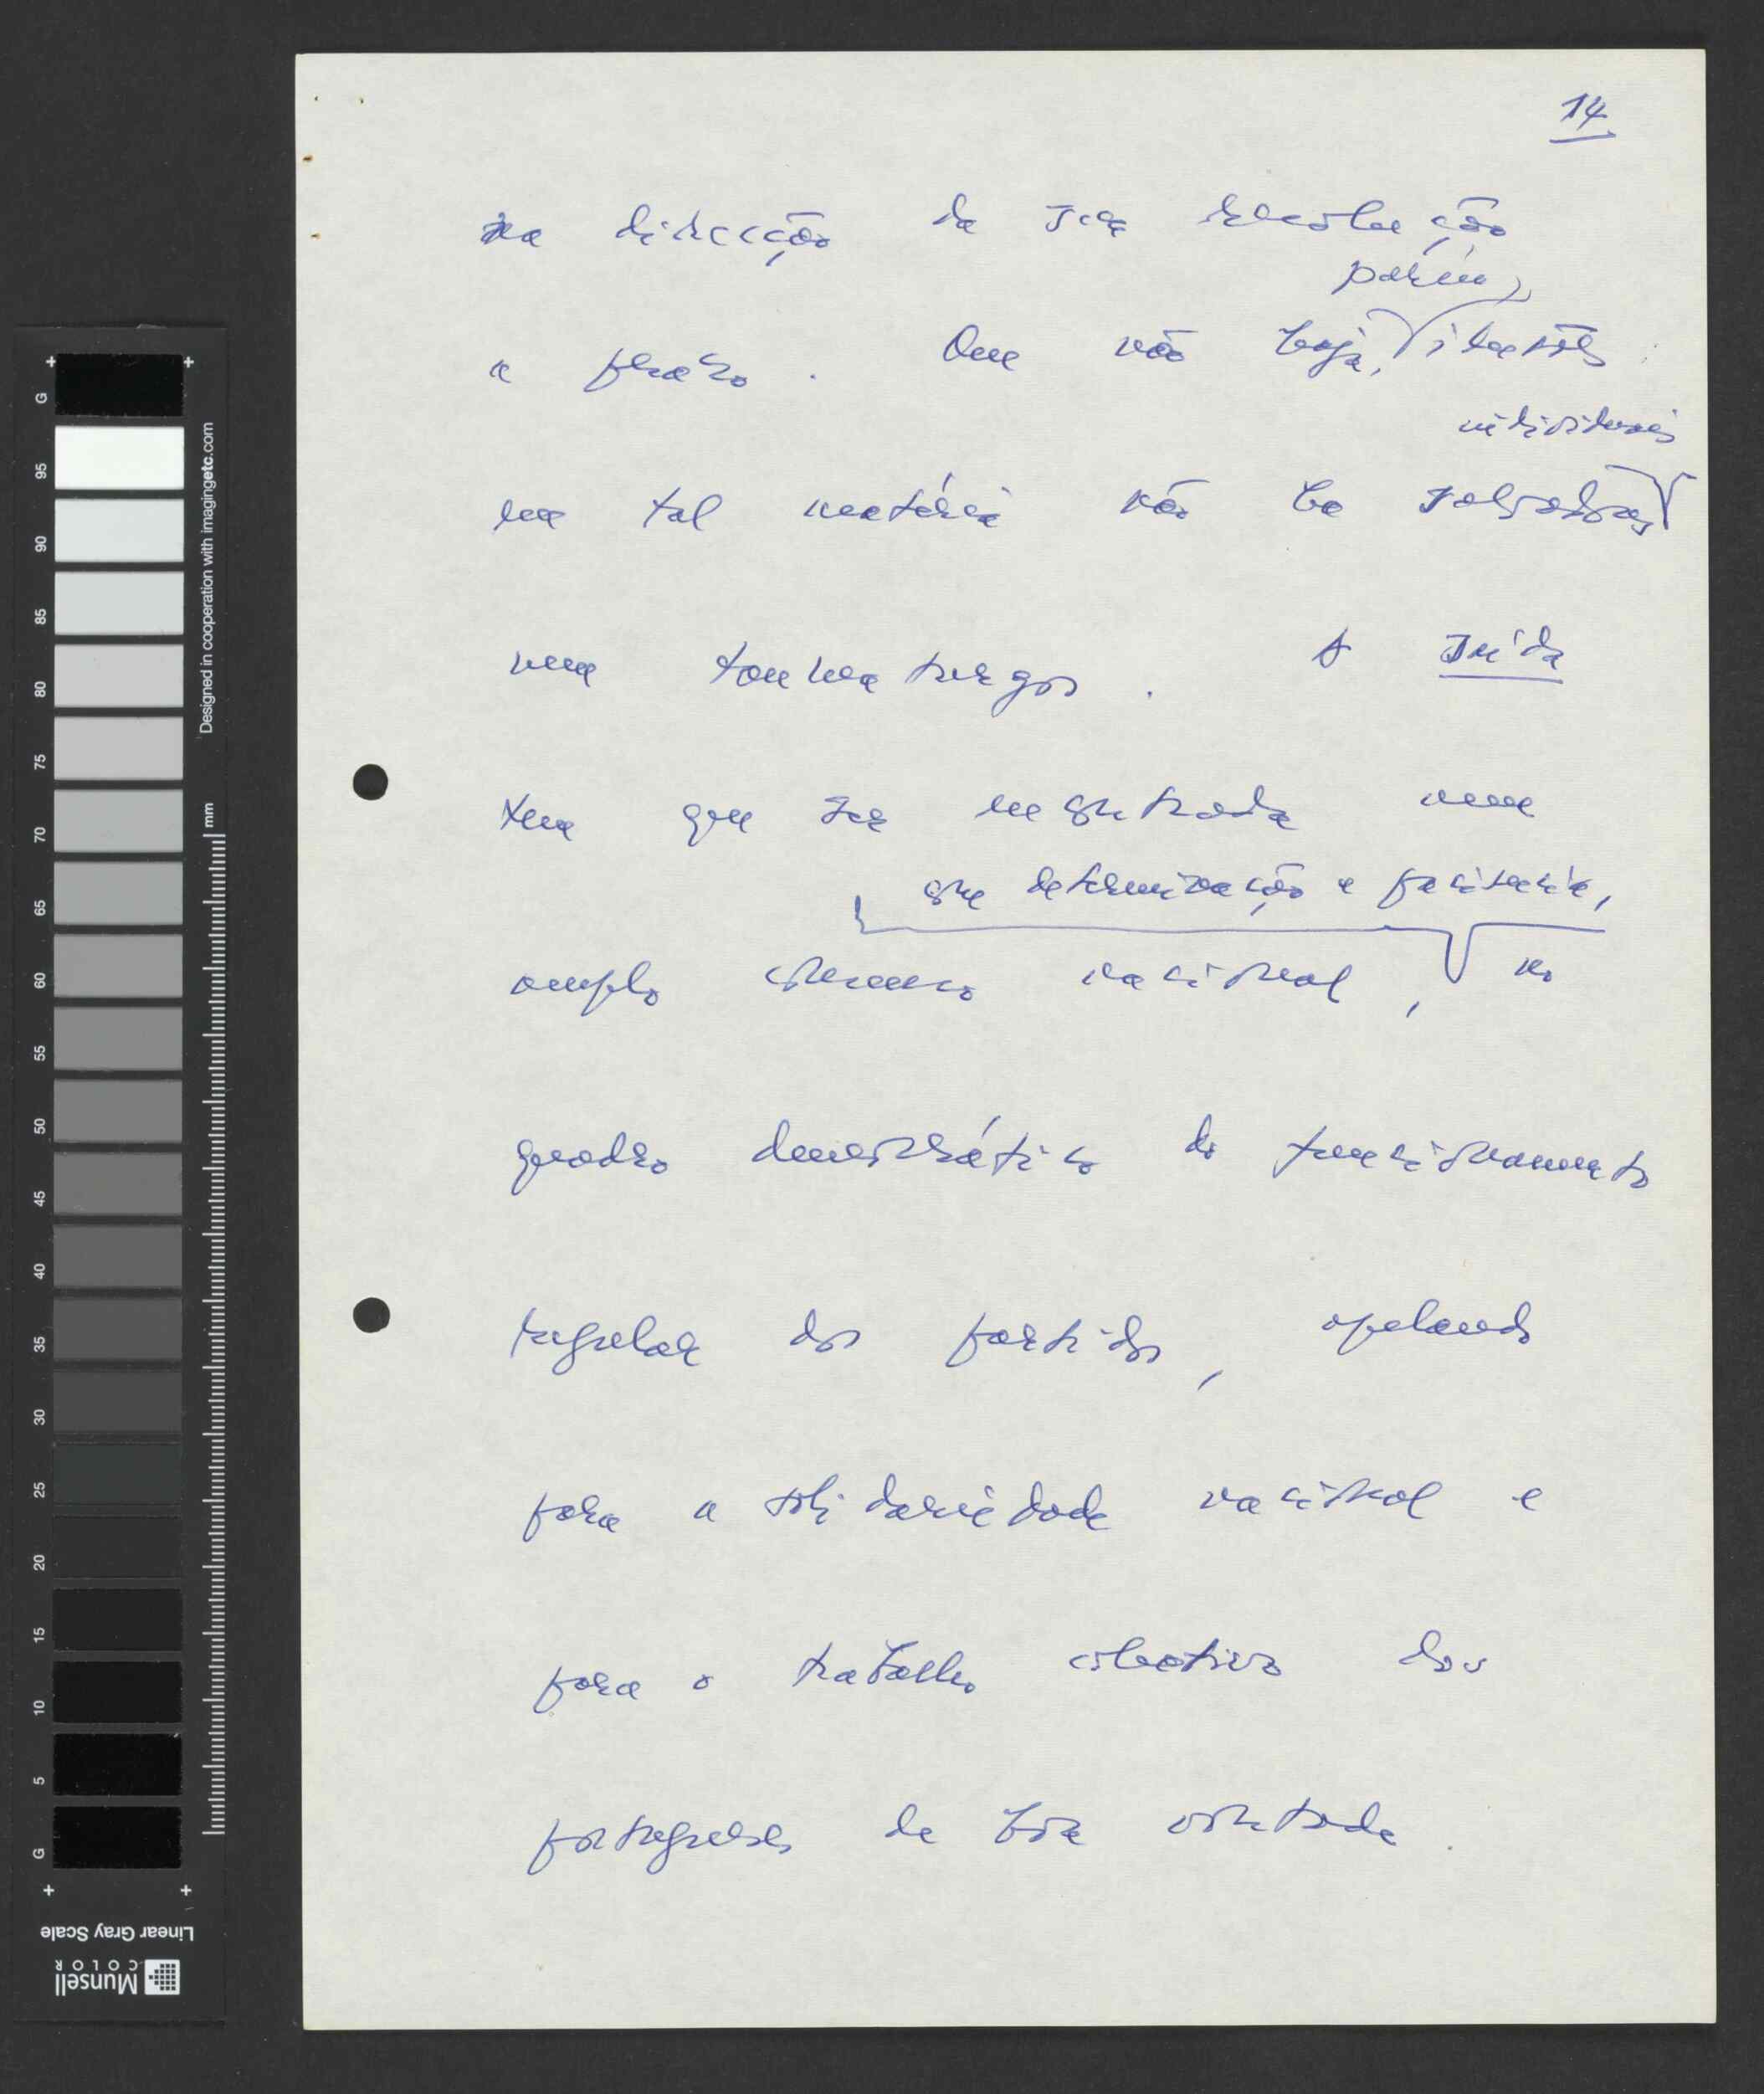 14
na direcção da sua resolução
porém,
a prazo. Que não haja, ilusões:
individuais
em tal matéria não há salvadores
nem taumaturgos. A saída
tem que ser encontrada num
com determinação e paciência,
amplo consenso nacional, no
quadro democrático do funcionamento
regular dos partidos, apelando
para a solidariedade nacional e
para o trabalho colectivo dos
portugueses de boa vontade.
G 95 90 85 80 75 70 65 60 55 50 45 40 35 30 25 20 15 10 5 G
Designed in cooperation with imagingetc.com
mm
Linear Gray Scale
Munsell
COLOR